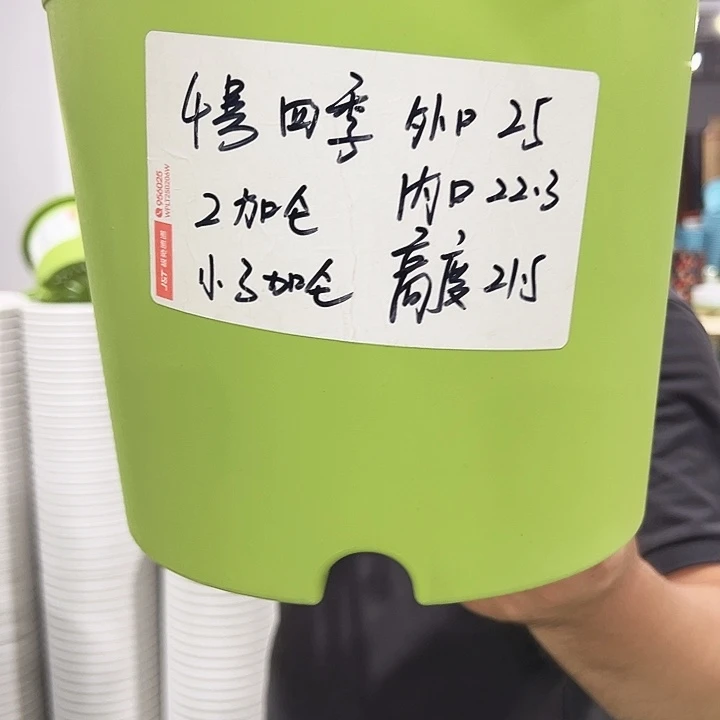 4号 四季 外口 25
2加仑 内口 22.3
小3加仑 高度 21.5
956025
J&T 极兔速递